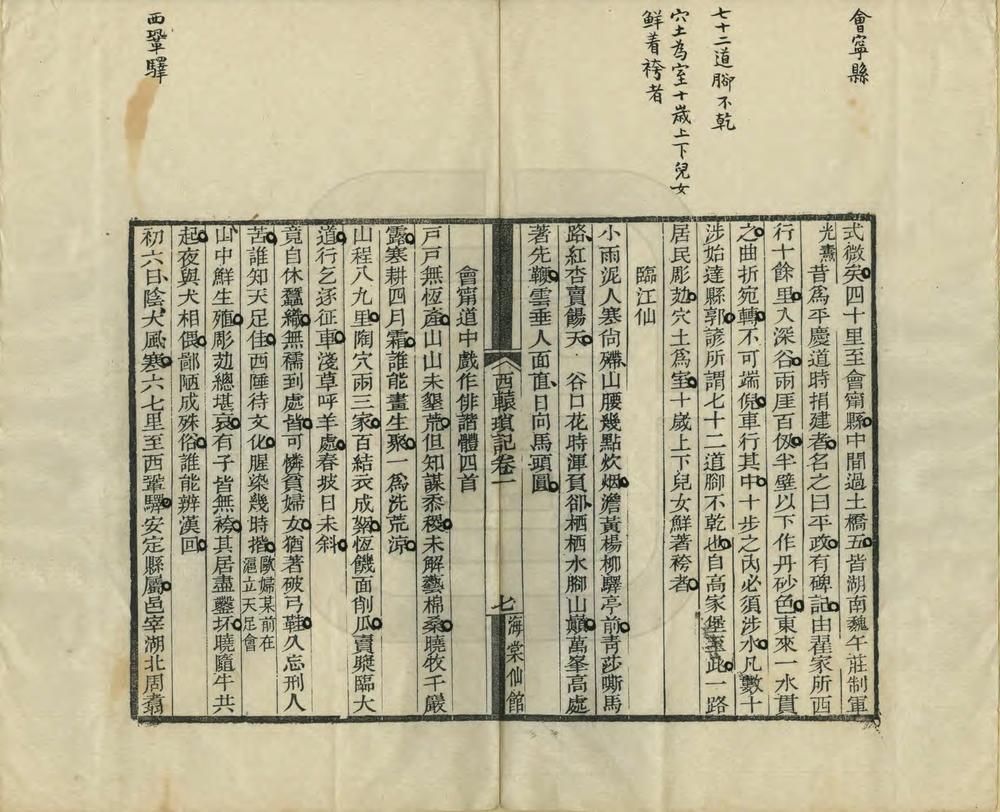 會寧縣
七十二道腳不乾
穴土為室十歲上下兒女
鮮着袴者
西鞏驛
式微矣四十里至會甯縣中間過土橋五皆湖南魏午莊制軍
光燾昔爲平慶道時捐建者名之曰平政有碑記由翟家所西
行十餘里入深谷兩厓百仭半壁以下作丹砂色東來一水貫
之曲折宛轉不可端倪車行其中十步之內必須涉水凡數十
涉始達縣郭諺所謂七十二道腳不乾也自高家堡至此一路
居民彫㓝穴土爲室十歲上下兒女鮮著袴者
臨江仙
小雨泥人寒尙殢山腰幾點炊烟澹黃楊柳驛亭前靑莎嘶馬
路紅杏賣餳天　谷口花時渾負卻栖栖水腳山巔萬峯高處
著先鞭雲垂人面直日向馬頭圓
西轅瑣記卷一
七
海棠仙館
會甯道中戲作俳諧體四首
戸戸無恆產山山未墾荒但知謀黍稷未解藝棉桑曉牧千巖
露寒耕四月霜誰能畫生聚一爲洗荒涼
山程八九里陶穴兩三家百結衣成絮恆饑面削瓜賣漿臨大
道行乞逐征車淺草呼羊處春坡日未斜
竟自休蠶織無襦到處皆可憐貧婦女猶著破弓鞋久忘刑人
苦誰知天足佳西陲待文化腥染幾時揩歐婦某前在
滬立天足會
山中鮮生殖彫㓝總堪哀有子皆無袴其居盡鑿坏曉隨牛共
起夜與犬相偎鄙陋成殊俗誰能辨漢回
初六日陰大風寒六六七里至西鞏驛安定縣屬邑宰湖北周翥